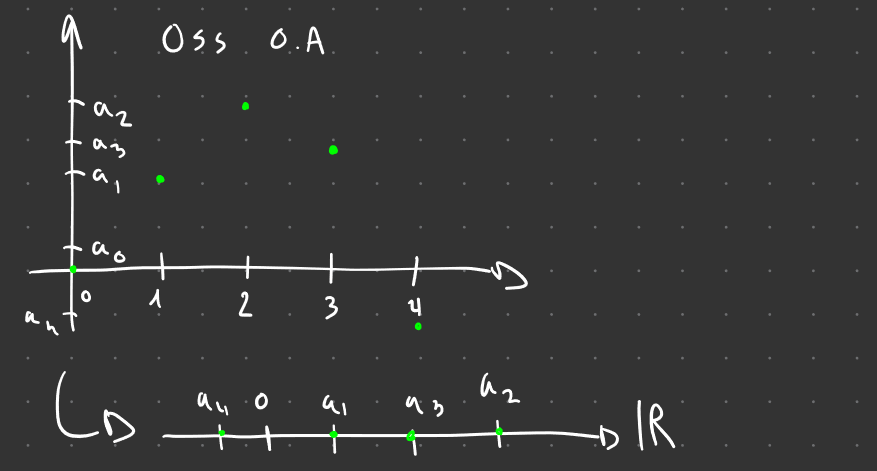 Oss O.A
a₂
a₃
a₁
a₀
0 1 2 3 4
a₄
a₄ 0 a₁ a₃ a₂ ℝ